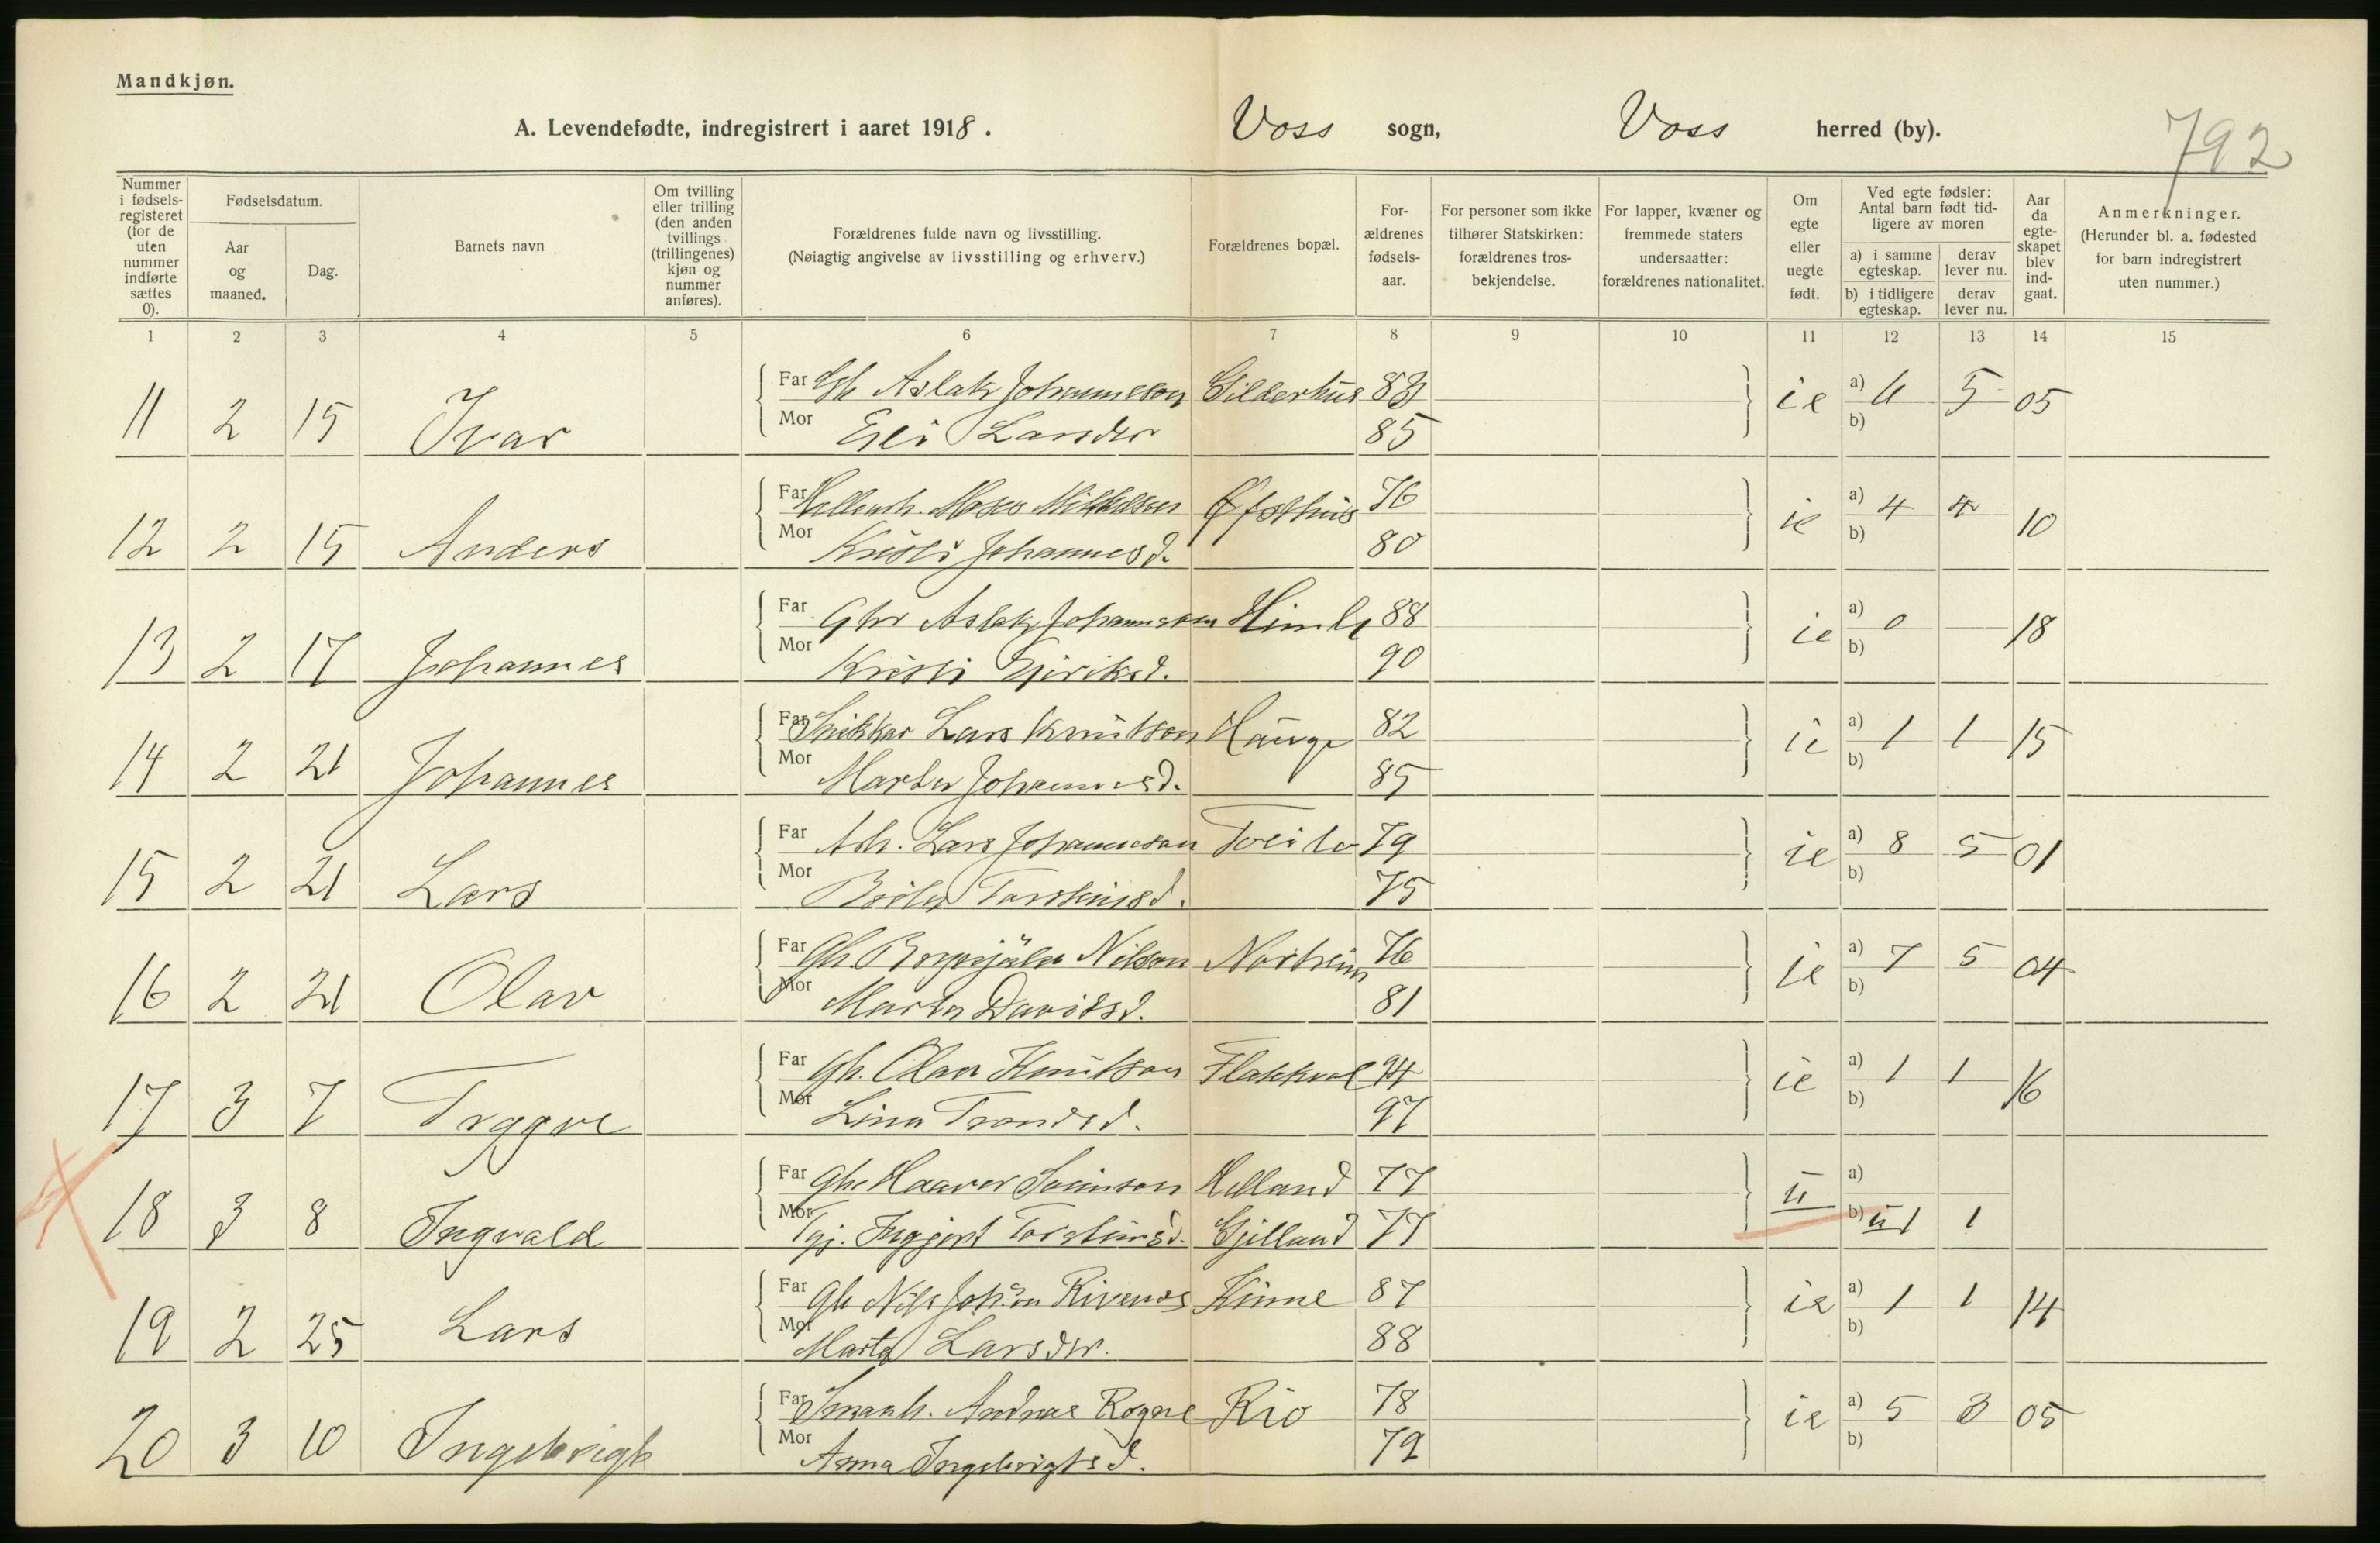 Mandkjøn.
A. Levendefødte, indregistrert i aaret 1918. Voss sogn, Voss herred (by).
792
Nummer i fødselsregisteret (for de uten nummer indførte sættes 0).
Fødselsdatum.
Aar og maaned.
Dag.
Barnets navn
Om tvilling eller trilling (den anden tvillings (trillingenes) kjøn og nummer anføres).
Forældrenes fulde navn og livsstilling.
(Nøiagtig angivelse av livsstilling og erhverv.)
Forældrenes bopæl.
Forældrenes fødselsaar.
For personer som ikke tilhører Statskirken: forældrenes trosbekjendelse.
For lapper, kvæner og fremmede staters undersaatter: forældrenes nationalitet.
Om egte eller uegte født.
Ved egte fødsler: Antal barn født tidligere av moren
a) i samme egteskap. derav lever nu.
b) i tidligere egteskap. derav lever nu.
Aar da egteskapet blev indgaat.
Anmerkninger.
(Herunder bl. a. fødested for barn indregistrert uten nummer.)
1 2 3 4 5 6 7 8 9 10 11 12 13 14 15
Far Gb Aslak Johannesson Gilderhus 83
11 2 15 Ivar ie a) 6 5 05
Mor Eli Larsdtr 85 b)
Far Mikkelson Øfsthus 76
12 2 15 Anders ie a) 4 4 10
Mor Kristi Johannesd. 80 b)
Far Gbr Aslak Johannesson Himle 88
13 2 17 Johannes ie a) 0 — 18
Mor Kristi Eiriksd. 90 b)
Far Snikkar Lars Knutson Hauge 82
14 2 21 Johannes ie a) 1 1 15
Mor Marta Johannesd. 85 b)
Far Arb. Lars Johannesson 79
15 2 21 Lars ie a) 8 5 01
Mor Torsteinsd. 75 b)
Far Gb. Nilson Norheim 76
16 2 21 Olav ie a) 7 5 04
Mor Marta Davidsd. 81 b)
Far Gb. Olav Knutson 94
17 3 7 Tryggve ie a) 1 1 16
Mor Lina Trondsd. 97 b)
Far Gb. Haaver Sveinson Helland 77
18 3 8 Ingvald u a)
Mor Tgj. Ingjerd Torsteinsd. Gjelland 77 b) u1 1
Far Gb Nils Johson Rivenes Kinne 87
19 2 25 Lars ie a) 1 1 14
Mor Marta Larsdtr. 88 b)
Far Smaab. Andreas Rogne Rio 78
20 3 10 Ingebrigt ie a) 5 3 05
Mor Anna Ingebrigtsd. 79 b)